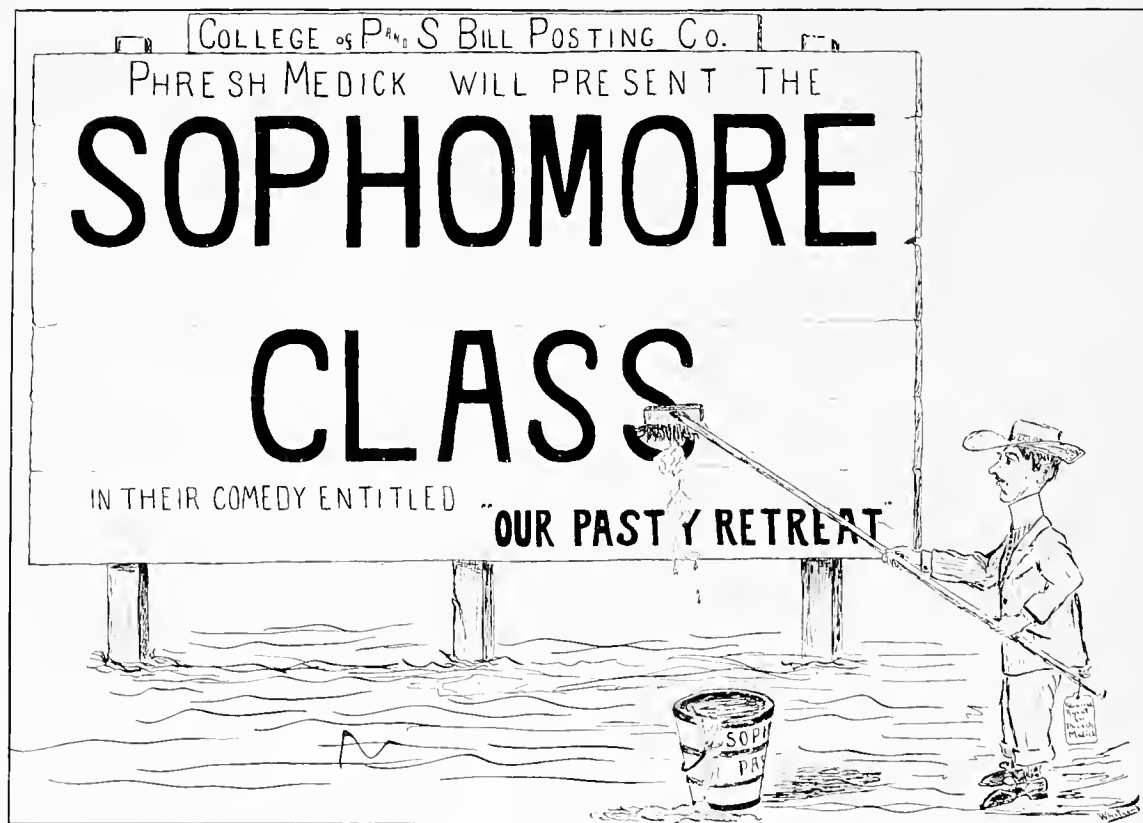 COLLEGE of P AND S BILL POSTING CO.
PHRESH MEDICK WILL PRESENT THE
SOPHOMORE
CLASS
IN THEIR COMEDY ENTITLED "OUR PASTY RETREAT"
SOPH
PAS
Phresh
Medick